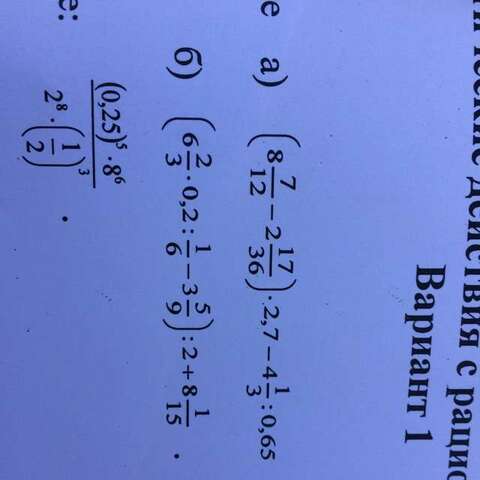 действия с рацио
Вариант 1
е а) (8 7/12 − 2 17/36) · 2,7 − 4 1/3 : 0,65
б) (6 2/3 · 0,2 : 1/6 − 3 5/9) : 2 + 8 1/15 .
е:
(0,25)⁵ · 8⁶ / 2⁸ · (1/2)³ .